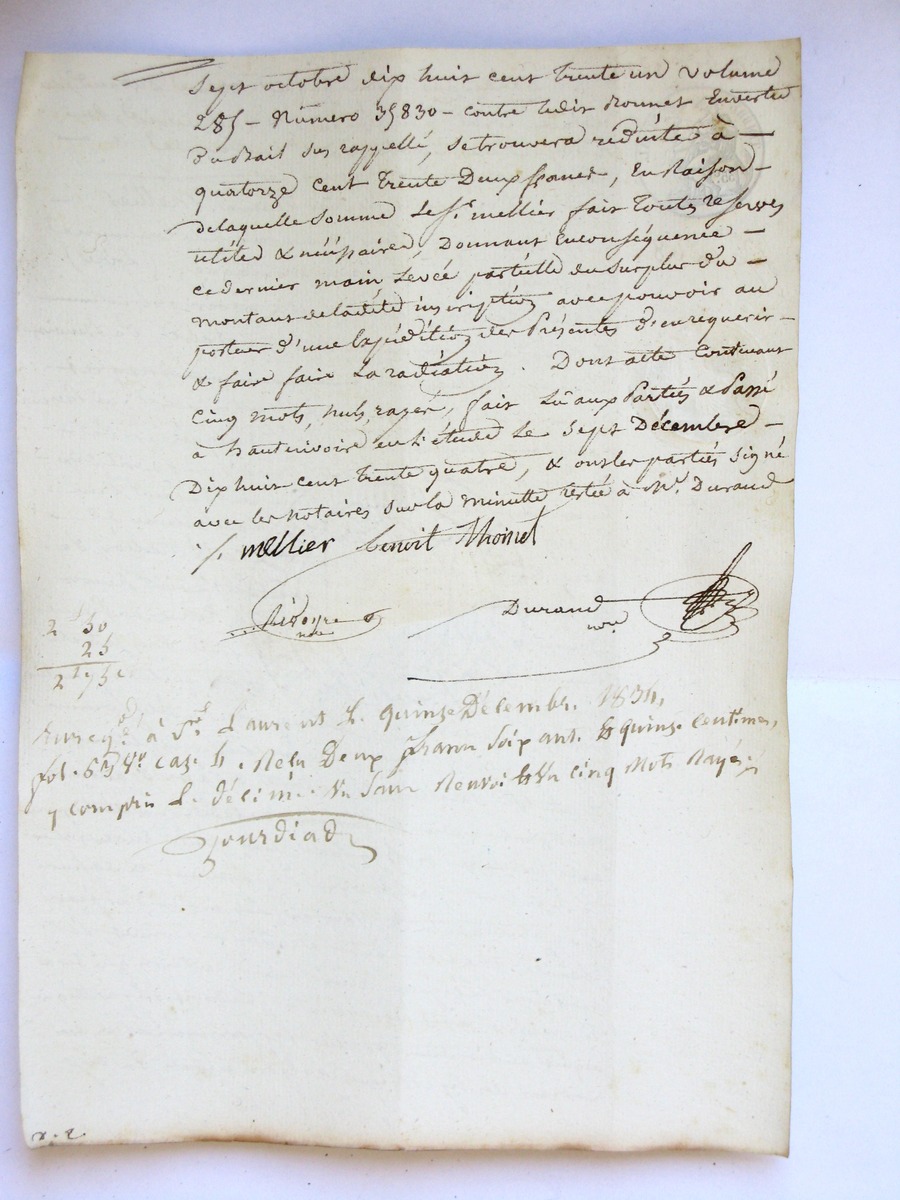 Sept octobre dix huit cent trente un volume
285 - Numéro 35830 - contre ledit Thonnet En vertu
Du Bail sus rappellé, se trouvera réduite à -
quatorze cent trente Deux francs, En Raison -
de laquelle somme Le Sr. mellier fait toutes reserves
utiles & nécéssaires, Donnant En conséquence -
ce dernier main Levée partielle du surplus du -
montant de ladite inscription avec pouvoir au
porteur d'une Expédition des Présentes d'en requerir -
& faire faire La radiation. Dont acte Contenant
Cinq mots, nuls, rayés, fait Lû aux Parties & Passé
à hauterivoire en l'étude Le Sept Décembre -
Dix huit cent trente quatre, & ont les parties signé
avec les notaires sur la minutte restée à Me. Durand
mellier benoit
Durand
nore
2 50
25
2 75c
Enregté. à St. Laurent le quinze Décembre 1834,
fol. Vo case 4. Reçu Deux francs soixante & quinze centimes,
y compris le décime. Vu sans Renvoi & Vu cinq Mots Rayés
Gourdiad